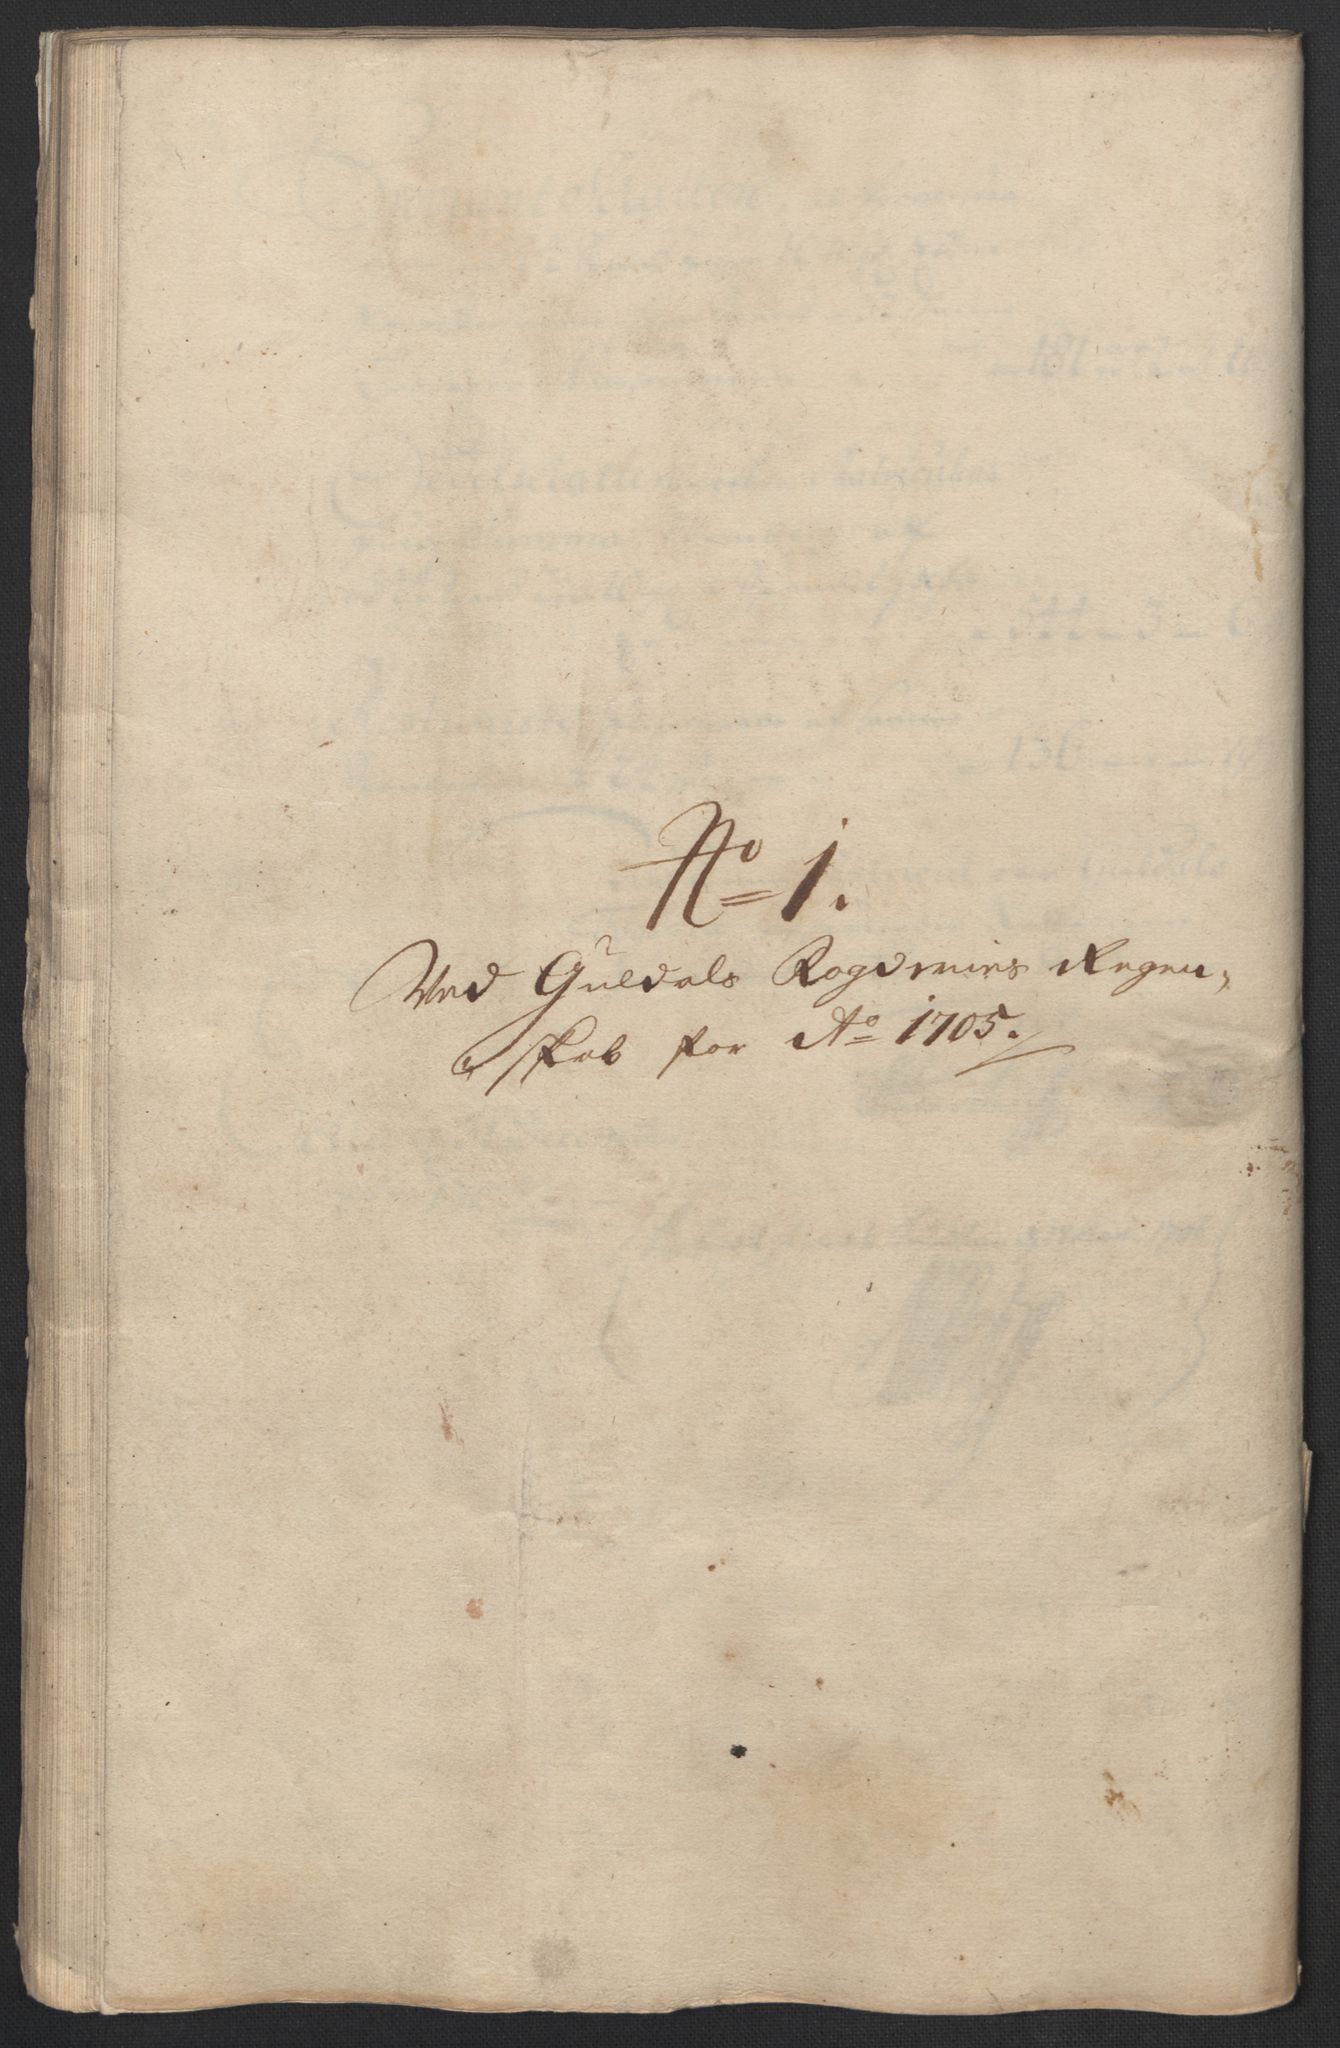 No 1.
Ved Guldals Fogderies Regen,
skab for Ao 1705.